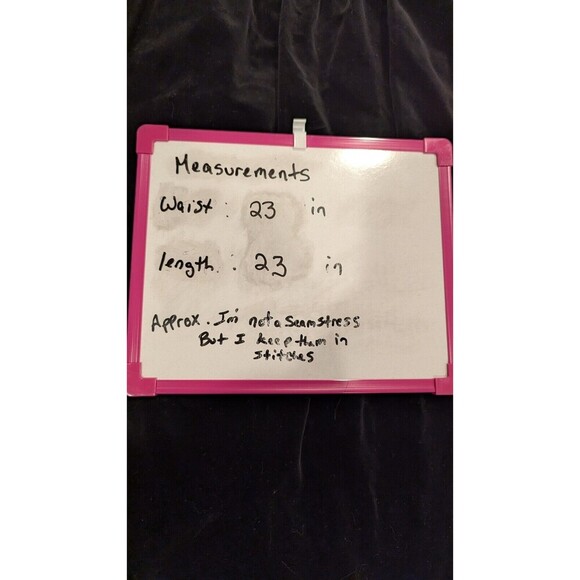 Measurements
Waist : 23 in
length : 23 in
Approx. I'm not a Seamstress
But I keep them in
stitches